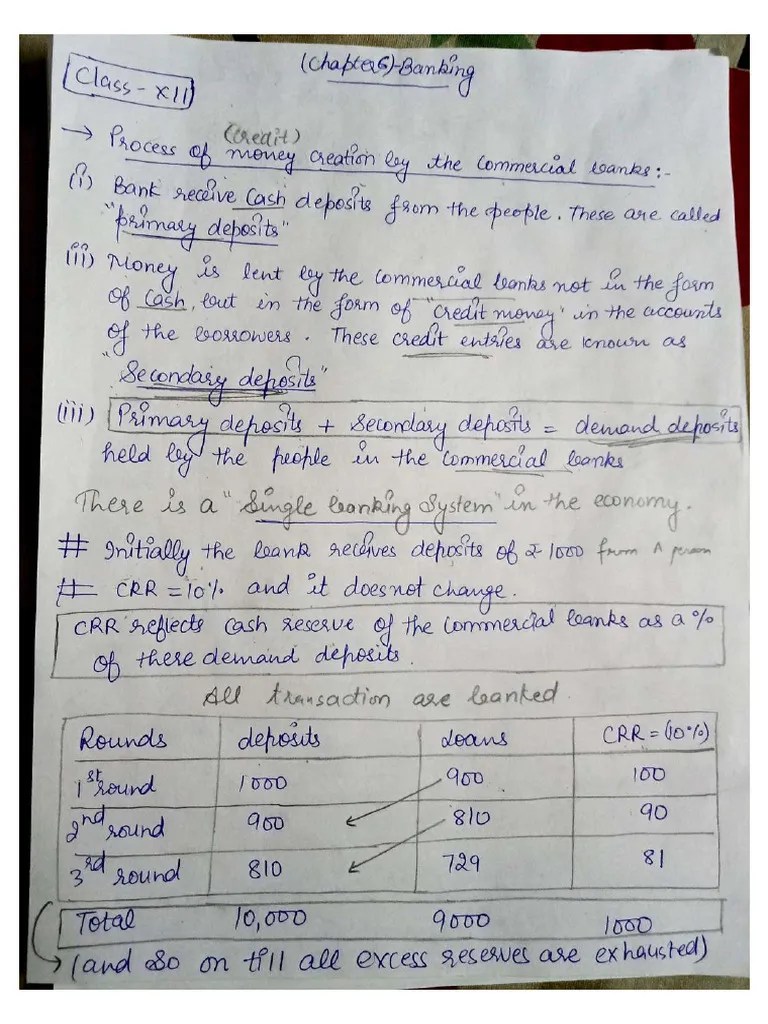 (Chapter6)-Banking
Class-XII
(credit)
→ Process of money creation by the commercial banks:-
(i) Bank receive cash deposits from the people. These are called
"primary deposits"
(ii) Money is lent by the commercial banks not in the form
of cash, but in the form of "credit money" in the accounts
of the borrowers. These credit entries are known as
"Secondary deposits"
(iii) Primary deposits + Secondary deposits = demand deposits
held by the people in the commercial banks
There is a "Single banking System" in the economy.
# Initially the bank receives deposits of ₹ 1000 from A person
# CRR = 10% and it doesnot change.
CRR reflects cash reserve of the commercial banks as a %
of these demand deposits.
All transaction are banked.
Rounds deposits Loans CRR = (10%)
1st round 1000 900 100
2nd round 900 810 90
3rd round 810 729 81
Total 10,000 9000 1000
→ (and so on till all excess reserves are exhausted)